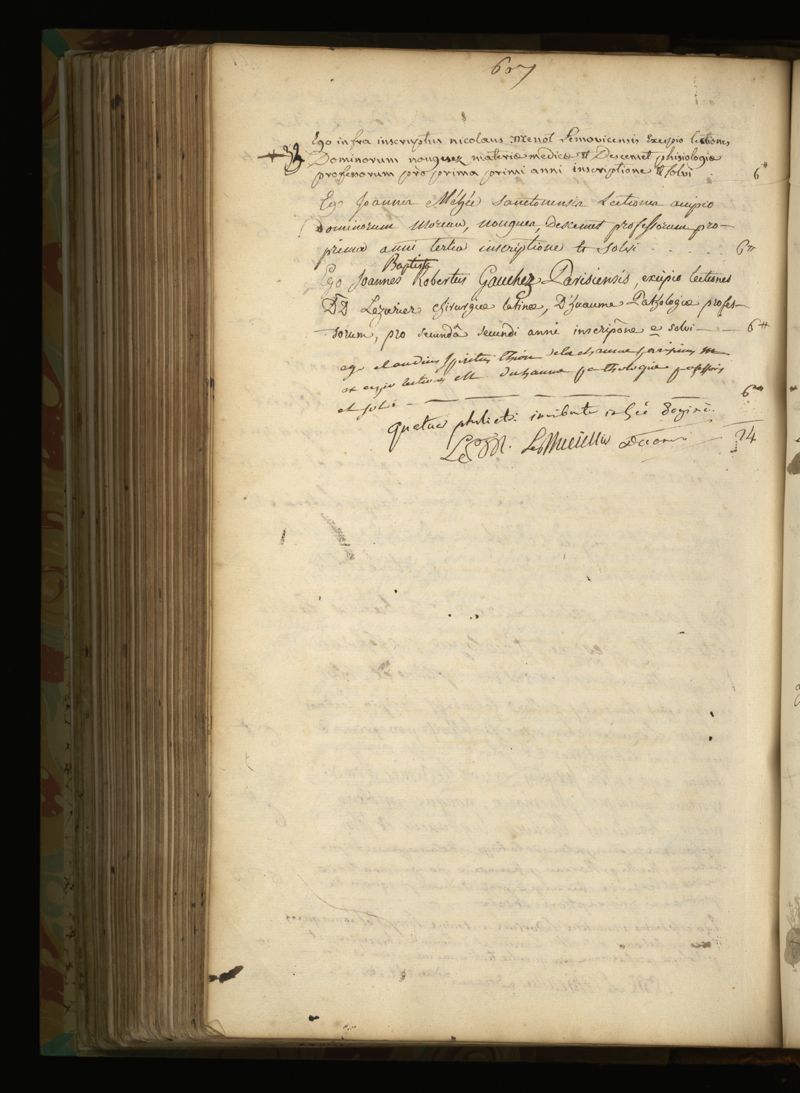 607
Ego infra inscriptus nicolaus menot Lemovicensis Excipio lectiones
Dominorum nouguez materiæ medicæ et Descemet phisiologiæ
professorum pro prima primi anni inscriptione et solvi 6"
Ego Joannes Mêhée sanctonensis Lectiones excipio
Dominorum Moreau, nouguez, Descemet professorum pro-
prima anni tertia inscriptione et solvi . . . . 6"
Baptista
Ego Joannes Robertus Gauchez Parisiensis, excipio lectiones
DD Lezurier chirurgiæ latinæ, D'huaume Pathologiæ profes-
-sorum, pro secundâ secundi anni inscriptione e solvi — 6"
ego claudius spiritus thion delachaume parisinus
excipio lectiones duhaume pathologiæ professoris
et solvi 6"
quatuor inscripti in hâc paginâ
Le Decanus 24